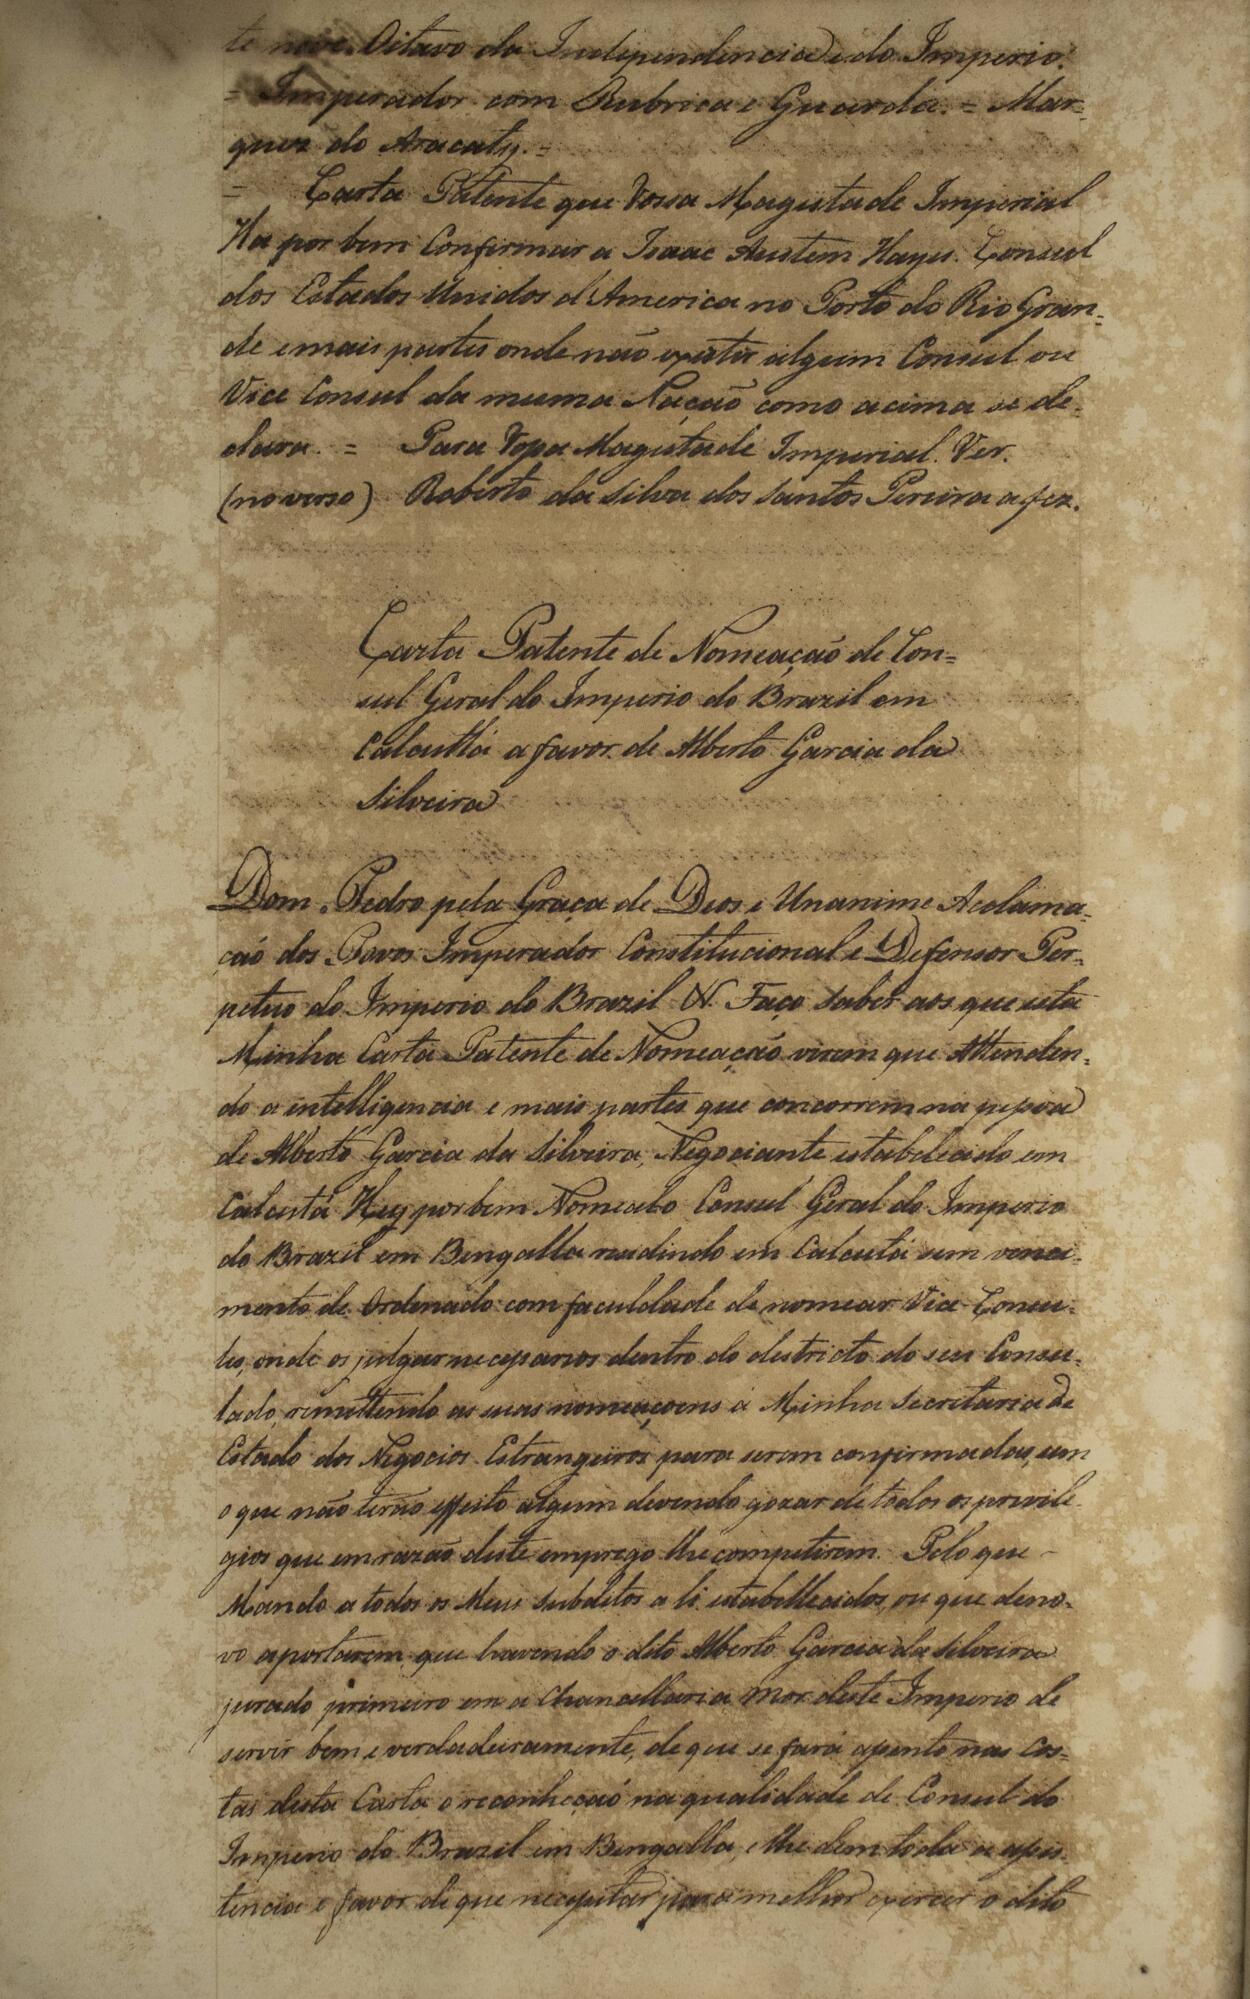 te nove. Oitavo da Independencia e do Imperio.
= Imperador com Rubrica e Guarda. = Mar-
quez do Aracaty. =
= Carta Patente que Vossa Magestade Imperial
Ha por bem Confirmar a Isaac Austem Hayes. Consul
dos Estados Unidos d'America no Porto do Rio Gran-
de e mais partes onde não existir algum Consul ou
Vice Consul da mesma Nação como acima se de-
clara. = Para Vossa Magestade Imperial. Ver.
(no verso) Roberto da Silva dos Santos Pereira a fez.
Carta Patente de Nomeação de Con=
sul Geral do Imperio do Brazil em
Calcuttá a favor de Alberto Garcia da
Silveira
Dom Pedro pela Graça de Deos e Unanime Acclama-
ção dos Povos Imperador Constitucional e Defensor Per-
petuo do Imperio do Brazil &. Faço saber aos que esta
Minha Carta Patente de Nomeação virem que Attenden-
do a intelligencia e mais partes que concorrem na pessoa
de Alberto Garcia da Silveira, Negociante estabelecido em
Calcutá Hey por bem Nomealo Consul Geral do Imperio
do Brazil em Bengalla residindo em Calcutá sem venci-
mento de Ordenado com faculdade de nomear Vice-Consu-
les, onde os julgar necessarios dentro do districto do seu Consu-
lado remettendo as suas nomeaçoens á Minha Secretaria de
Estado dos Negocios Estrangeiros para serem confirmadas, sem
o que não terão effeito algum devendo gozar de todos os previle-
gios que em razão deste emprego lhe competirem. Pelo que -
Mando a todos os Meus Subditos a li estabellecidos, ou que deno-
vo aportarem que havendo o dito Alberto Garcia da Silveira
jurado primeiro em a Chancellaria mor deste Imperio de
servir bem e verdadeiramente, de que se fará assento nas Cos-
tas desta Carta o reconheção na qualidade de Consul do
Imperio do Brazil em Bengalla, e lhe dem toda a assis-
tencia e favor de que necessitar para melhor exercer o dito